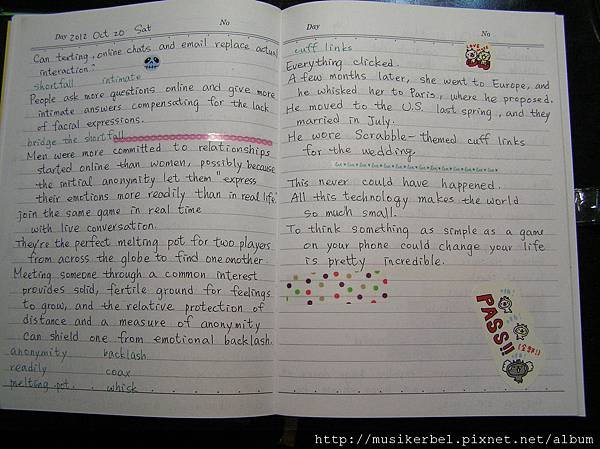 Day 2012 Oct 20 Sat No
Can texting, online chats and email replace actual
interaction?
shortfall intimate
People ask more questions online and give more
intimate answers compensating for the lack
of facial expressions.
bridge the shortfall
Men were more committed to relationships
started online than women, possibly because
the initial anonymity let them "express
their emotions more readily than in real life."
join the same game in real time
with live conversation.
They're the perfect melting pot for two players
from across the globe to find one another.
Meeting someone through a common interest
provides solid, fertile ground for feelings
to grow, and the relative protection of
distance and a measure of anonymity
can shield one from emotional backlash.
anonymity backlash
readily coax
melting pot. whisk
Day No
cuff links
Everything clicked.
A few months later, she went to Europe, and
he whisked her to Paris, where he proposed.
He moved to the U.S. last spring, and they
married in July.
He wore Scrabble-themed cuff links
for the wedding.
This never could have happened.
All this technology makes the world
so much small.
To think something as simple as a game
on your phone could change your life
is pretty incredible.
PASS!!
http://musikerbel.pixnet.net/album